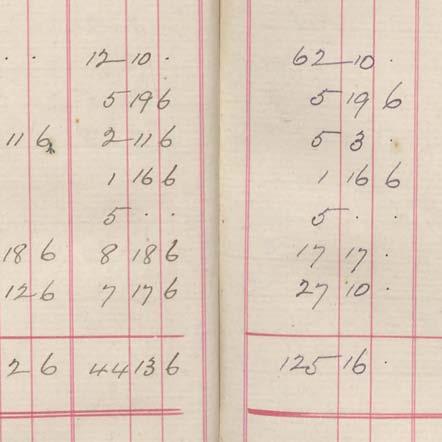 · · 12 10 · 62 10 ·
5 19 6 5 19 6
11 6 2 11 6 5 3 ·
1 16 6 1 16 6
5 · · 5 · ·
18 6 8 18 6 17 17 ·
12 6 7 17 6 27 10 ·
2 6 44 13 6 125 16 ·